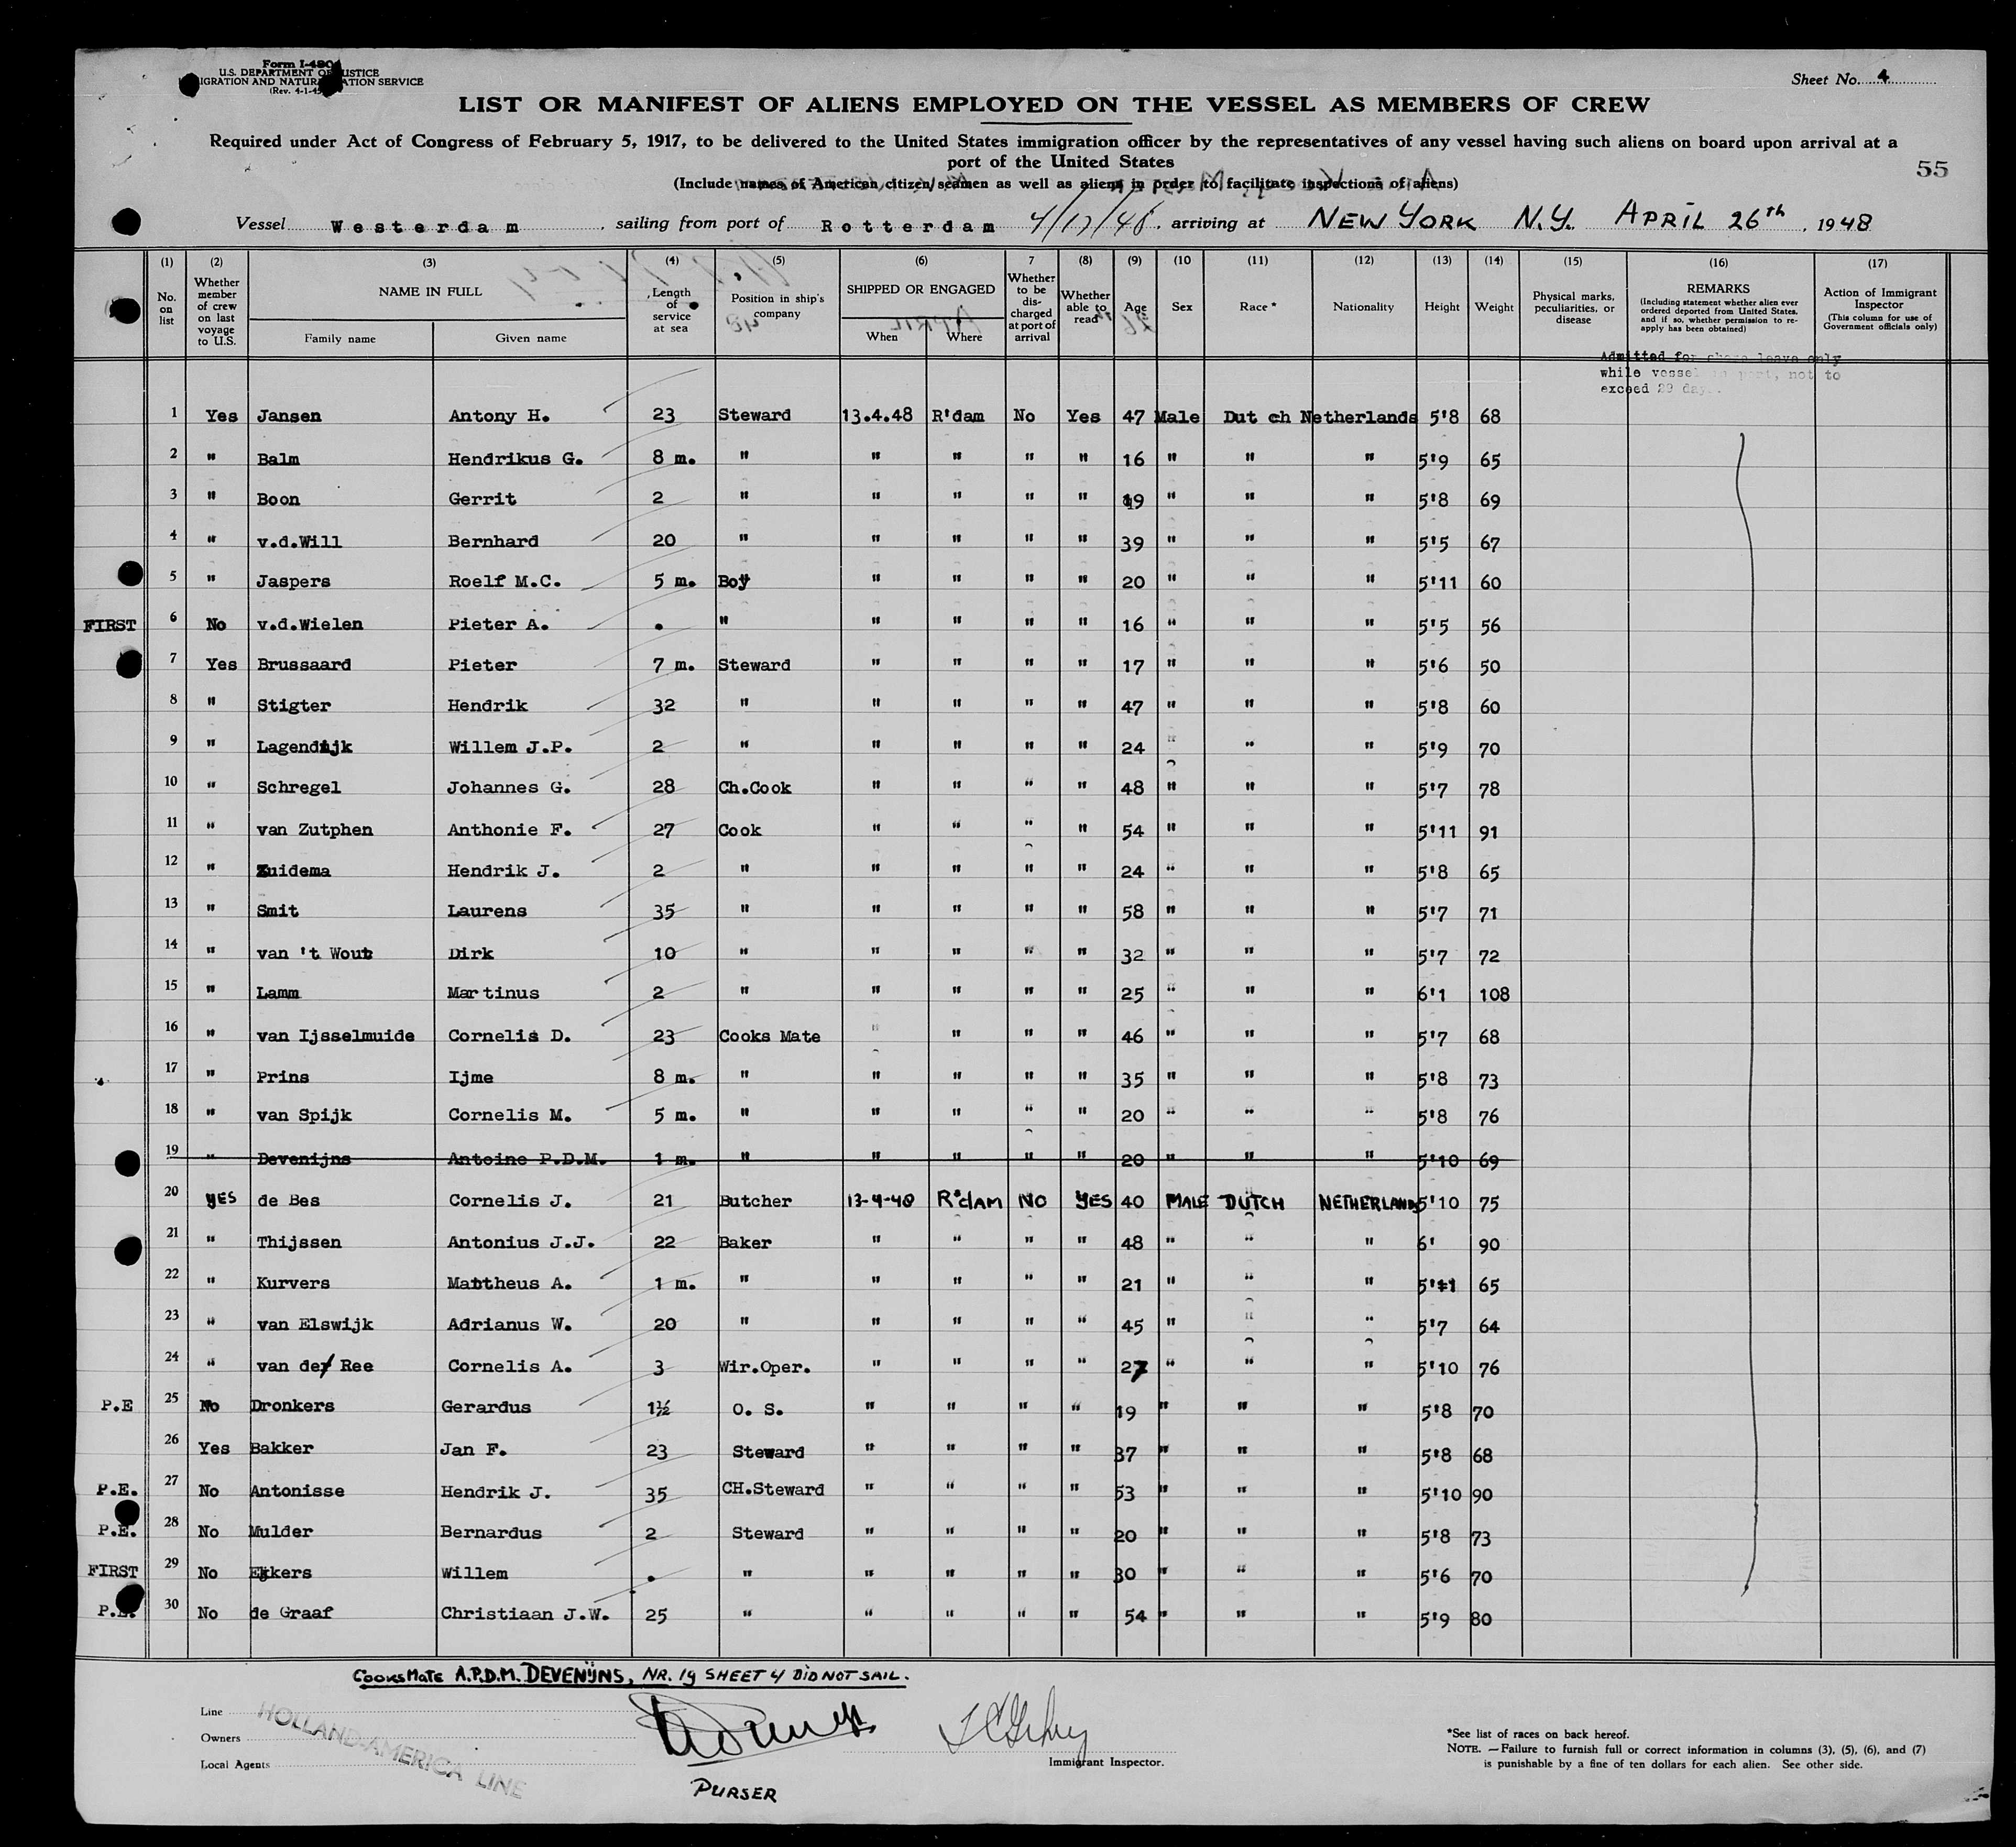 Form I-480
U.S. DEPARTMENT OF JUSTICE
IMMIGRATION AND NATURALIZATION SERVICE
(Rev. 4-1-45)
Sheet No. 4
LIST OR MANIFEST OF ALIENS EMPLOYED ON THE VESSEL AS MEMBERS OF CREW
Required under Act of Congress of February 5, 1917, to be delivered to the United States immigration officer by the representatives of any vessel having such aliens on board upon arrival at a
port of the United States
55
(Include names of American citizen seamen as well as aliens in order to facilitate inspections of aliens)
Vessel Westerdam, sailing from port of Rotterdam 4/17/48, arriving at NEW YORK N.Y. APRIL 26th, 1948
(1) No. on list (2) Whether member of crew on last voyage to U.S. (3) NAME IN FULL Family name Given name (4) Length of service at sea (5) Position in ship's company (6) SHIPPED OR ENGAGED When Where 7 Whether to be discharged at port of arrival (8) Whether able to read (9) Age (10 Sex (11) Race * (12) Nationality (13) Height (14) Weight (15) Physical marks, peculiarities, or disease (16) REMARKS (Including statement whether alien ever ordered deported from United States, and if so, whether permission to re-apply has been obtained) (17) Action of Immigrant Inspector (This column for use of Government officials only)
Admitted for shore leave only
while vessel in port, not to
exceed 29 days.
1 Yes Jansen Antony H. 23 Steward 13.4.48 R'dam No Yes 47 Male Dut ch Netherlands 5'8 68
2 " Balm Hendrikus G. 8 m. " " " " " 16 " " " 5'9 65
3 " Boon Gerrit 2 " " " " " 19 " " " 5'8 69
4 " v.d.Will Bernhard 20 " " " " " 39 " " " 5'5 67
5 " Jaspers Roelf M.C. 5 m. Boy " " " " 20 " " " 5'11 60
FIRST 6 No v.d.Wielen Pieter A. . " " " " " 16 " " " 5'5 56
7 Yes Brussaard Pieter 7 m. Steward " " " " 17 " " " 5'6 50
8 " Stigter Hendrik 32 " " " " " 47 " " " 5'8 60
9 " Lagendijk Willem J.P. 2 " " " " " 24 " " " 5'9 70
10 " Schregel Johannes G. 28 Ch.Cook " " " " 48 " " " 5'7 78
11 " van Zutphen Anthonie F. 27 Cook " " " " 54 " " " 5'11 91
12 " Zuidema Hendrik J. 2 " " " " " 24 " " " 5'8 65
13 " Smit Laurens 35 " " " " " 58 " " " 5'7 71
14 " van 't Wout Dirk 10 " " " " " 32 " " " 5'7 72
15 " Lamm Martinus 2 " " " " " 25 " " " 6'1 108
16 " van Ijsselmuide Cornelis D. 23 Cooks Mate " " " " 46 " " " 5'7 68
17 " Prins Ijme 8 m. " " " " " 35 " " " 5'8 73
18 " van Spijk Cornelis M. 5 m. " " " " " 20 " " " 5'8 76
19 " Devenijns Antoine P.D.M. 1 m. " " " " " 20 " " " 5'10 69
20 YES de Bes Cornelis J. 21 Butcher 13-4-48 R'dAM NO YES 40 MALE DUTCH NETHERLANDS 5'10 75
21 " Thijssen Antonius J.J. 22 Baker " " " " 48 " " " 6' 90
22 " Kurvers Mattheus A. 1 m. " " " " " 21 " " " 5'11 65
23 " van Elswijk Adrianus W. 20 " " " " " 45 " " " 5'7 64
24 " van der Ree Cornelis A. 3 Wir.Oper. " " " " 27 " " " 5'10 76
P.E 25 No Dronkers Gerardus 1½ O. S. " " " " 19 " " " 5'8 70
26 Yes Bakker Jan F. 23 Steward " " " " 37 " " " 5'8 68
P.E. 27 No Antonisse Hendrik J. 35 CH.Steward " " " " 53 " " " 5'10 90
P.E. 28 No Mulder Bernardus 2 Steward " " " " 20 " " " 5'8 73
FIRST 29 No Ekkers Willem . " " " " " 30 " " " 5'6 70
P.E. 30 No de Graaf Christiaan J.W. 25 " " " " " 54 " " " 5'9 80
COOKSMATE A.P.D.M. DEVENIJNS, NR. 19 SHEET 4 DID NOT SAIL.
Line
Owners
Local Agents
HOLLAND-AMERICA LINE
PURSER
Immigrant Inspector.
*See list of races on back hereof.
NOTE.—Failure to furnish full or correct information in columns (3), (5), (6), and (7)
is punishable by a fine of ten dollars for each alien. See other side.